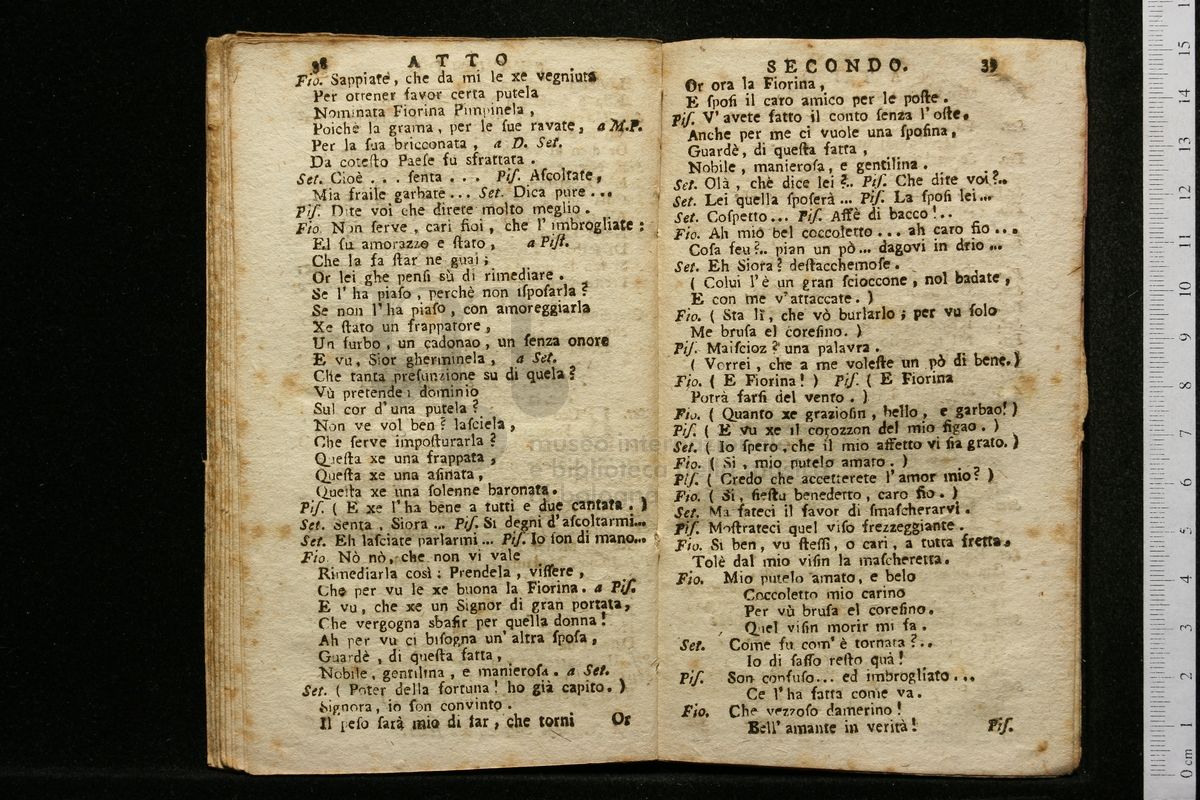 38 ATTO
Fio. Sappiate, che da mi le xe vegniuta
Per ottener favor certa putela
Nominata Fiorina Pimpinela,
Poichè la grama, per le sue ravate, a M.P.
Per la sua bricconata, a D. Set.
Da cotesto Paese fu sfrattata.
Set. Cioè... senta... Pis. Ascoltate,
Mia fraile garbate... Set. Dica pure...
Pis. Dite voi che direte molto meglio.
Fio. Non serve, cari fioi, che l'imbrogliate:
El su amorazzo e stato, a Pist.
Che la fa star ne guai;
Or lei ghe pensi sù di rimediare.
Se l'ha piaso, perchè non isposarla?
Se non l'ha piaso, con amoreggiarla
Xe stato un frappatore,
Un furbo, un cadonao, un senza onore
E vu, Sior gherminela, a Set.
Che tanta presunzione su di quela?
Vù pretende i dominio
Sul cor d'una putela?
Non ve vol ben? lasciela,
Che serve imposturarla?
Questa xe una frappata,
Questa xe una asinata,
Questa xe una solenne baronata.
Pis. (E xe l'ha bene a tutti e due cantata.)
Set. Senta, Siora... Pis. Si degni d'ascoltarmi...
Set. Eh lasciate parlarmi... Pis. Io son di mano...
Fio. Nò nò, che non vi vale
Rimediarla così: Prendela, vissere,
Che per vu le xe buona la Fiorina. a Pis.
E vu, che xe un Signor di gran portata,
Che vergogna sbasir per quella donna!
Ah per vu ci bisogna un'altra sposa,
Guardè, di questa fatta,
Nobile, gentilina, e manierosa. a Set.
Set. (Poter della fortuna! ho già capito.)
Signora, io son convinto.
Il peso sarà mio di far, che torni Or
SECONDO. 39
Or ora la Fiorina,
E sposi il caro amico per le poste.
Pis. V'avete fatto il conto senza l'oste.
Anche per me ci vuole una sposina,
Guardè, di questa fatta,
Nobile, manierosa, e gentilina.
Set. Olà, chè dice lei?.. Pis. Che dite voi?..
Set. Lei quella sposerà... Pis. La sposi lei...
Set. Cospetto... Pis. Affè di bacco!..
Fio. Ah mio bel coccoletto... ah caro fio...
Cosa feu?.. pian un pò... dagovi in drio...
Set. Eh Siora? destacchemose.
(Colui l'è un gran scioccone, nol badate,
E con me v'attaccate.)
Fio. (Sta lì, che vò burlarlo; per vu solo
Me brusa el coresino.)
Pis. Maiscioz? una palavra.
(Vorrei, che a me voleste un pò di bene.)
Fio. (E Fiorina!) Pis. (E Fiorina
Potrà farsi del vento.)
Fio. (Quanto xe graziosin, bello, e garbao!)
Pis. (E vu xe il corozzon del mio figao.)
Set. (Io spero, che il mio affetto vi sia grato.)
Fio. (Si, mio putelo amato.)
Pis. (Credo che accetterete l'amor mio?)
Fio. (Si, siestu benedetto, caro fio.)
Set. Ma fateci il favor di smascherarvi.
Pis. Mostrateci quel viso frezzeggiante.
Fio. Si ben, vu stessi, o cari, a tutta fretta,
Tolè dal mio visin la mascheretta.
Fio. Mio putelo amato, e belo
Coccoletto mio carino
Per vù brusa el coresino.
Quel visin morir mi fa.
Set. Come fu com'è tornata?..
Io di sasso resto quà!
Pis. Son confuso... ed imbrogliato...
Ce l'ha fatta come va.
Fio. Che vezzoso damerino!
Bell'amante in verità! Pis.